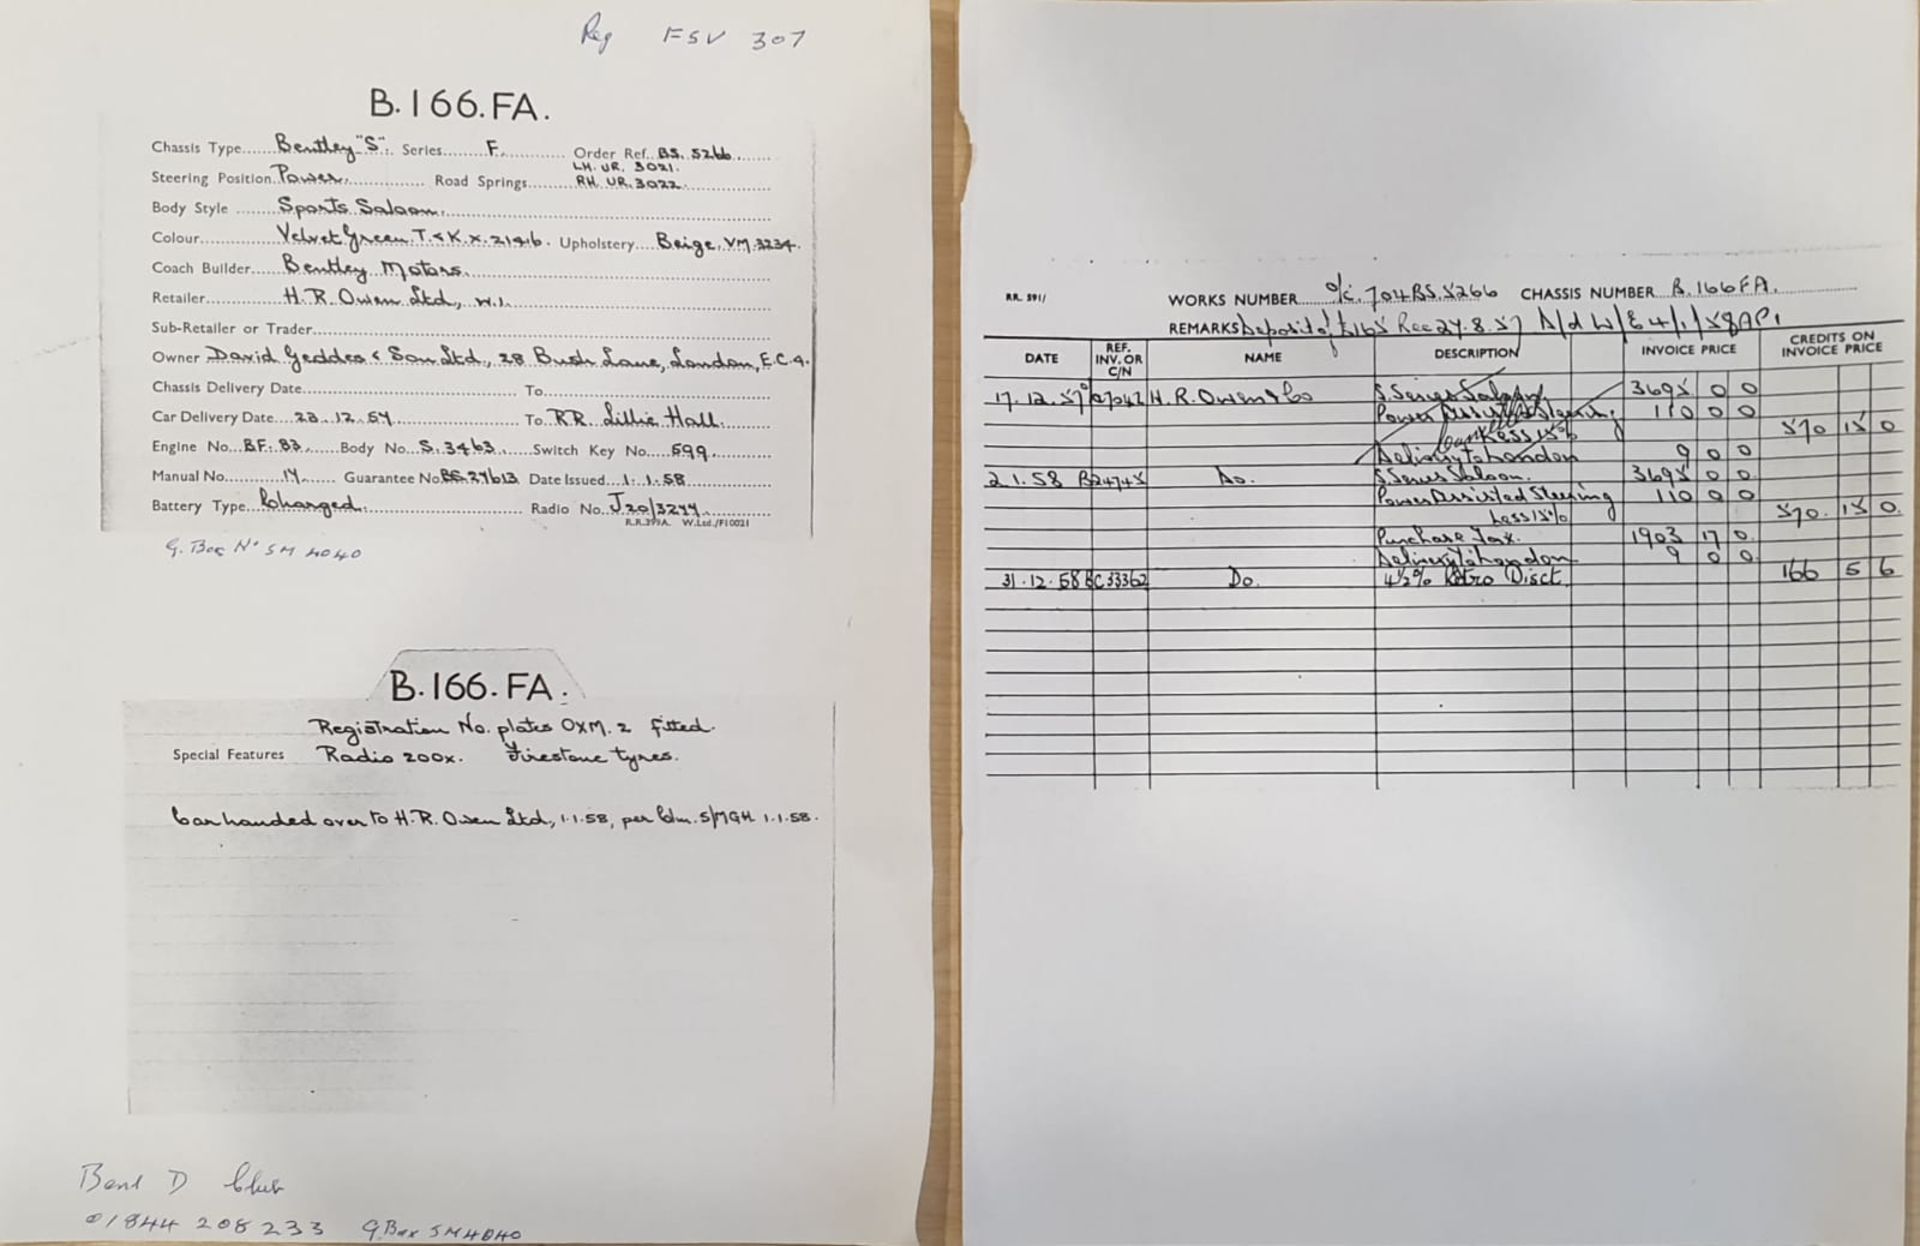 Reg FSV 307
B.166.FA.
Chassis Type......Bentley "S". Series........F............ Order Ref..BS. 5266.......
LH. UR. 3021.
Steering Position..Power................. Road Springs........RH. UR. 3022.
Body Style ........Sports Saloon.
Colour..............Velvet Green. T. & K. X. 2196. Upholstery....Beige. VM. 3234.
Coach Builder......Bentley Motors.
Retailer..............H. R. Owen Ltd., W.1.
Sub-Retailer or Trader
Owner David Geddes & Son Ltd., 28 Bush Lane, London, E.C.4.
Chassis Delivery Date........................... To
Car Delivery Date...23.12.57 To..RR. Lillie Hall.
Engine No...BF. 83......Body No...S. 3463......Switch Key No...599.
Manual No..........14...... Guarantee No.BS. 27613 Date Issued...1.1.58.
Battery Type..Charged. Radio No..J20/3277
R.R.399A. W.Ltd./F10021
G. Box No SM 4040
B.166.FA.
Registration No. plates OXM. 2 fitted.
Special Features Radio 200x. Firestone tyres.
Car handed over to H.R. Owen Ltd., 1.1.58, per Cdm. S/MGH 1.1.58.
Bent D Club
01844 208 233 G.Box SM4040
RR. 591/ WORKS NUMBER O/C. 704 BS. 5266 CHASSIS NUMBER B. 166 FA.
REMARKS Deposit of £165 Rec 27.8.57 A/d W/E 4/1/58
DATE REF. INV. OR C/N NAME DESCRIPTION INVOICE PRICE CREDITS ON INVOICE PRICE
17.12.57 H. R. Owen & Co S. Series Saloon. 3695 0 0
Power Assisted Steering 110 0 0
Less 15% 570 15 0
Delivery to London 9 0 0
2.1.58 B24745 Do. S. Series Saloon. 3695 0 0
Power Assisted Steering 110 0 0
Less 15% 570. 15 0.
Purchase Tax. 1903 17 0
Delivery to London 9 0 0
31.12.58 BC33362 Do. 4½% Retro Disct. 166 5 6